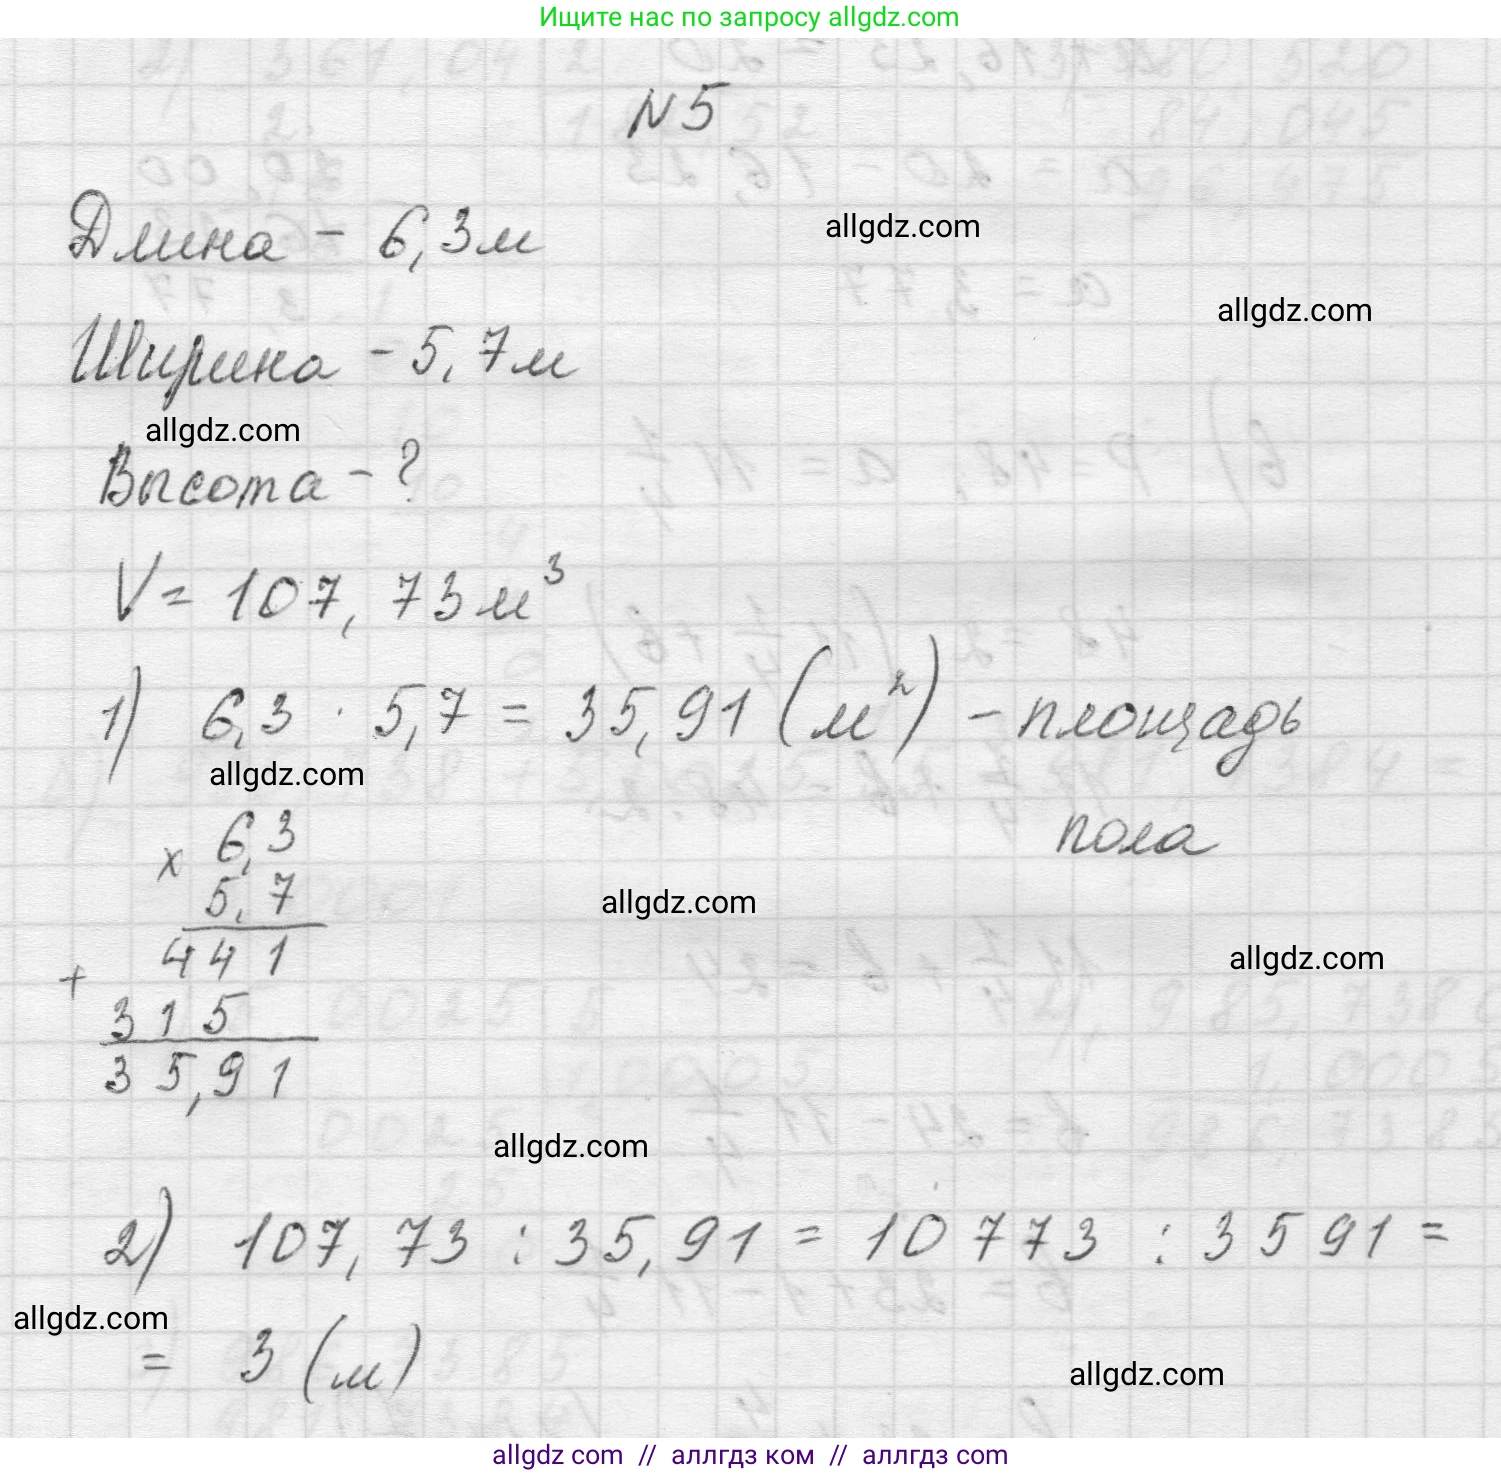 Ищите нас по запросу allgdz.com
N5
Длина - 6,3м
allgdz.com
allgdz.com
Ширина - 5,7м
allgdz.com
Высота - ?
V = 107,73м³
1) 6,3 · 5,7 = 35,91 (м²) - площадь
пола
allgdz.com
x 6,3
5,7
allgdz.com
441
allgdz.com
+
315
35,91
allgdz.com
2) 107,73 : 35,91 = 10773 : 3591 =
allgdz.com
= 3 (м)
allgdz.com
allgdz com // аллгдз ком // аллгдз com